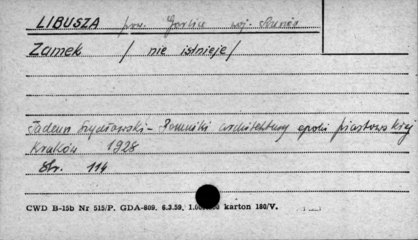 LIBUSZA pow. Gorlice woj.
Zamek / nie istnieje /
Tadeusz Szydłowski - Pomniki architektury epoki piastowskiej
Kraków 1928
Str. 114
CWD B-15b Nr 515/P. GDA-609. 6.3.59. karton 180/V.